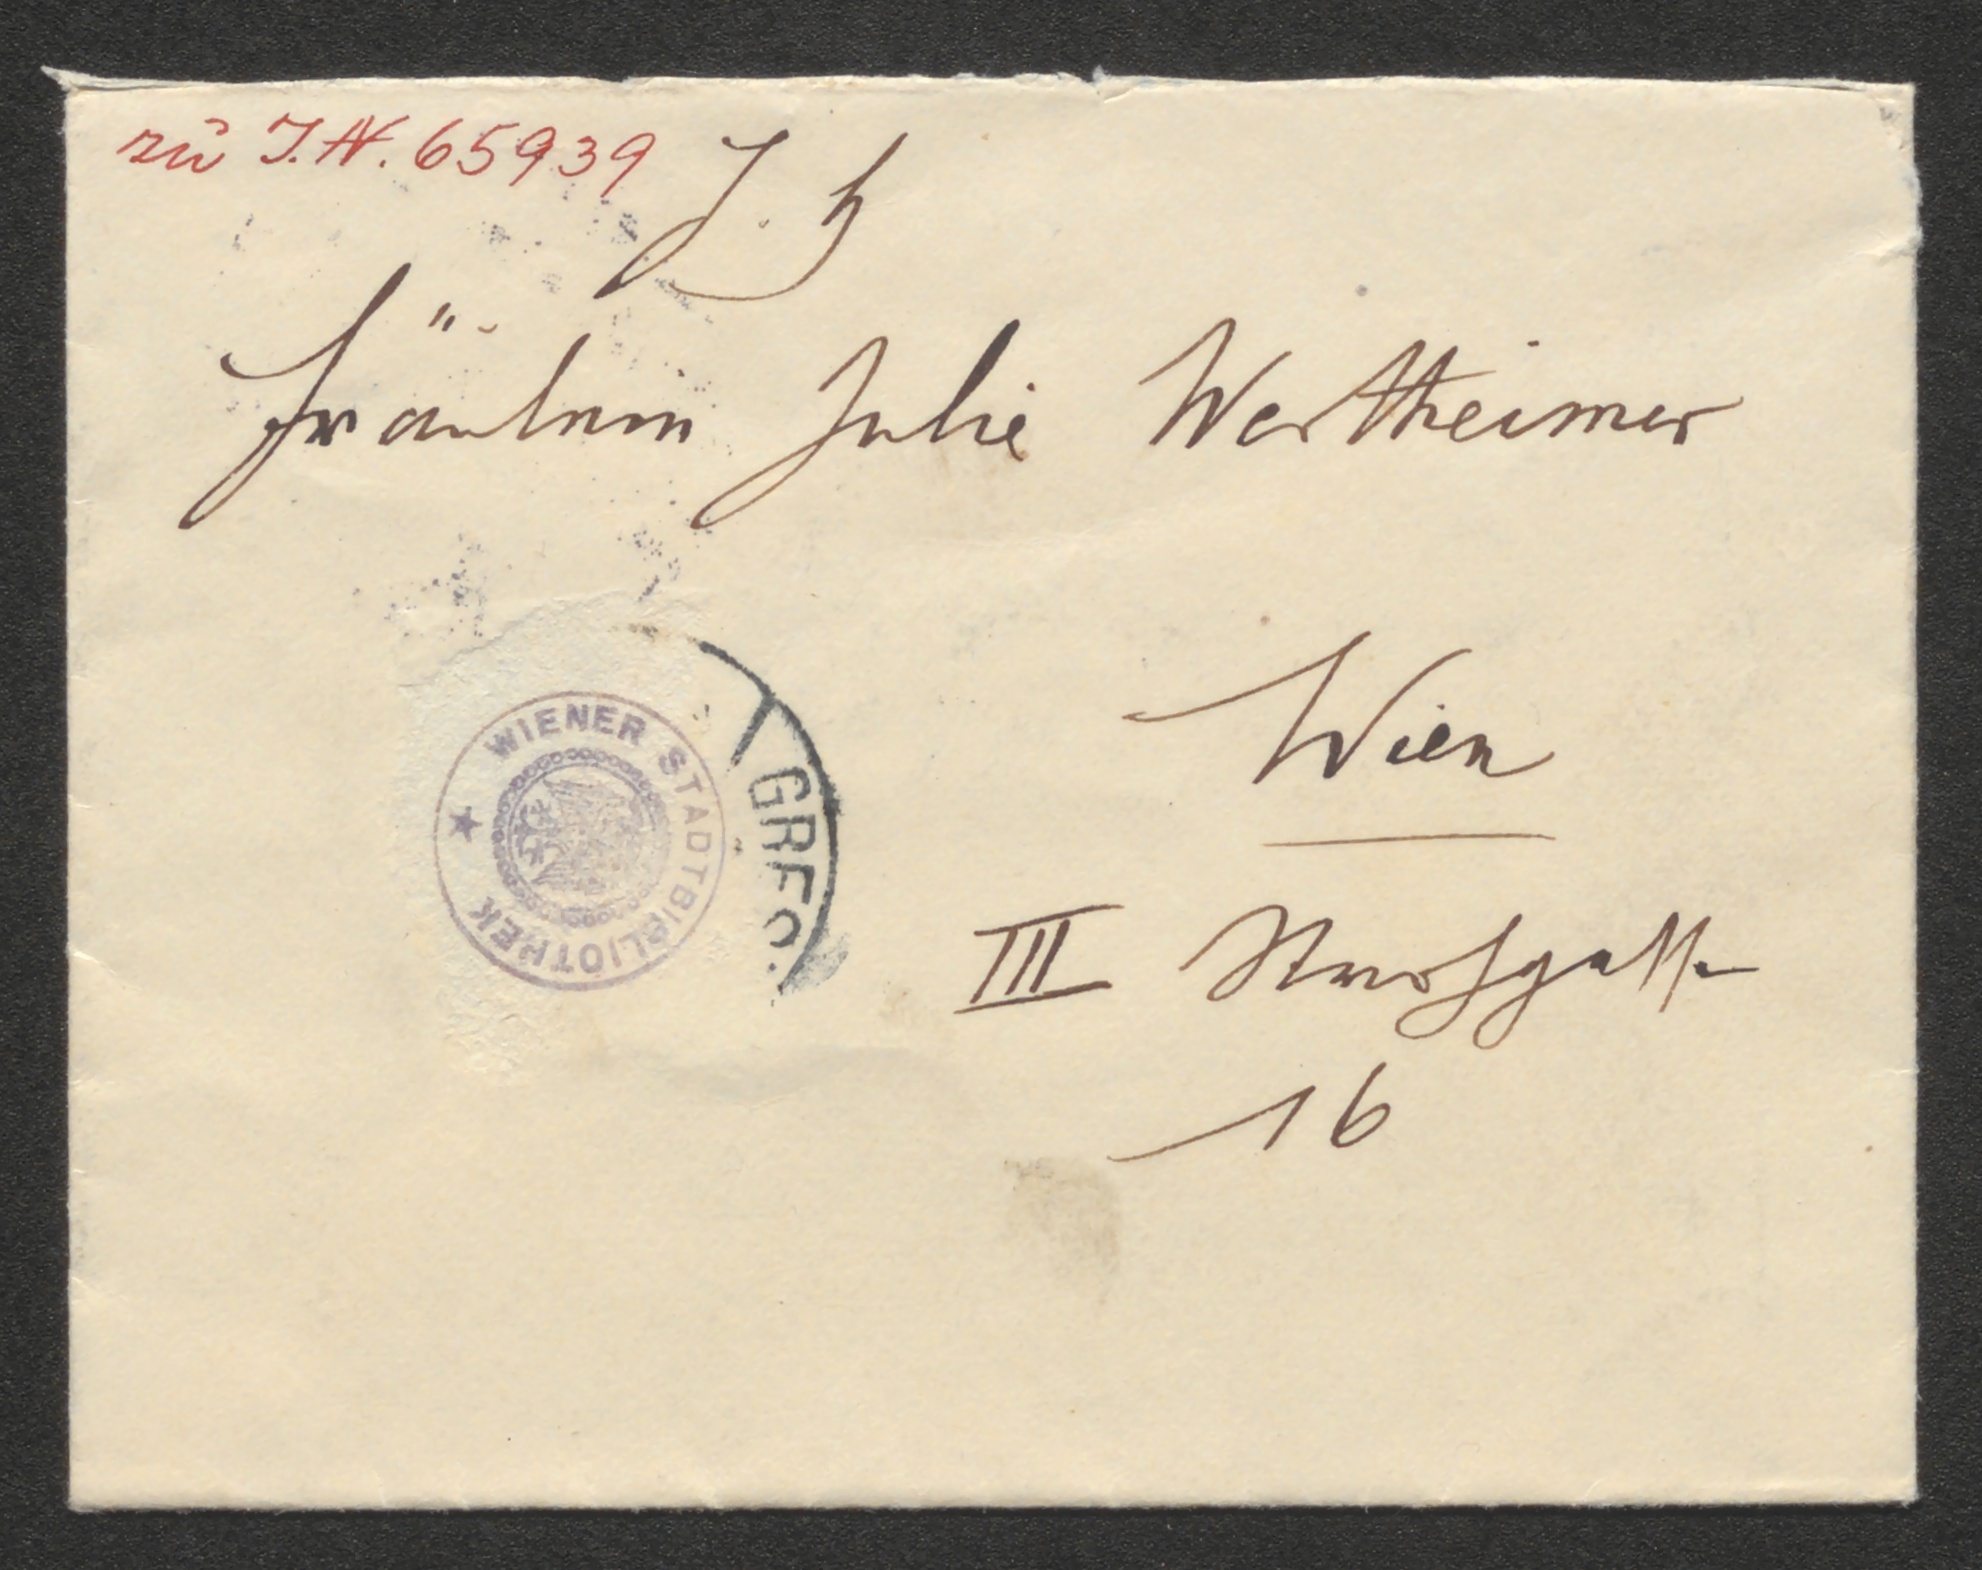 zu I.N. 65939
I. H
Fräulein Julie Wertheimer
Wien
III
16
WIENER STADTBIBLIOTHEK